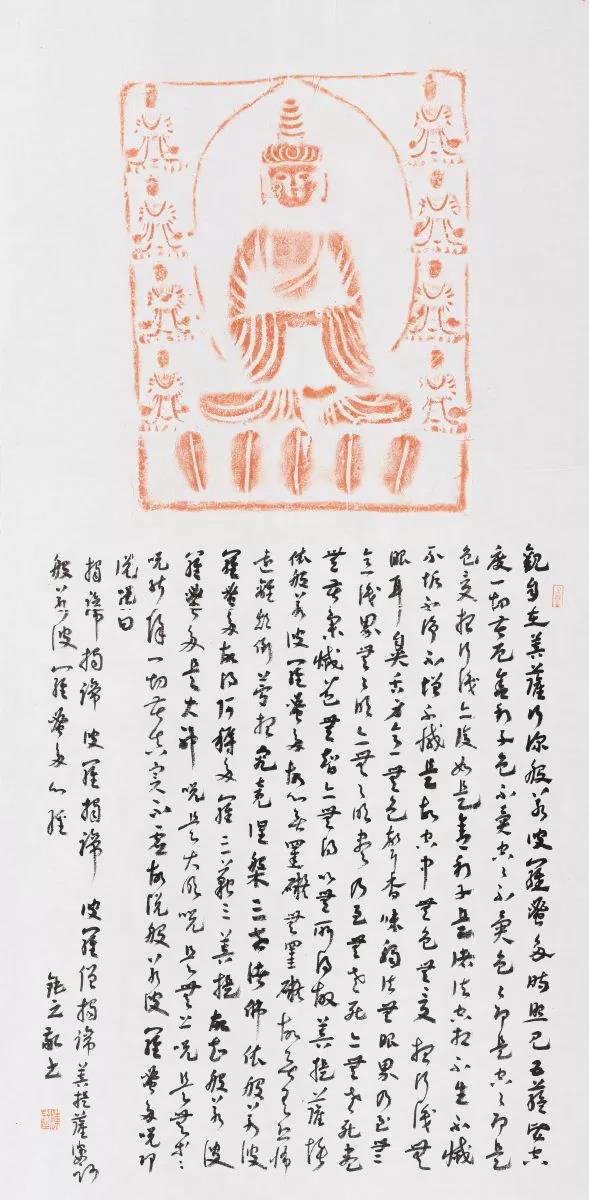 觀自在菩薩行深般若波羅蜜多時照見五蘊皆空
度一切苦厄舍利子色不異空空不異色色即是空空即是
色受想行識亦復如是舍利子是諸法空相不生不滅
不垢不淨不增不減是故空中無色無受想行識無
眼耳鼻舌身意無色聲香味觸法無眼界乃至無
意識界無無明亦無無明盡乃至無老死亦無老死盡
無苦集滅道無智亦無得以無所得故菩提薩埵
依般若波羅蜜多故心無罣礙無罣礙故無有恐怖
遠離顛倒夢想究竟涅槃三世諸佛依般若波
羅蜜多故得阿耨多羅三藐三菩提故知般若波
羅蜜多是大神咒是大明咒是無上咒是無等等
咒能除一切苦真實不虛故說般若波羅蜜多咒即
說咒曰
揭諦揭諦 波羅揭諦 波羅僧揭諦 菩提薩婆訶
般若波羅蜜多心經
敬書